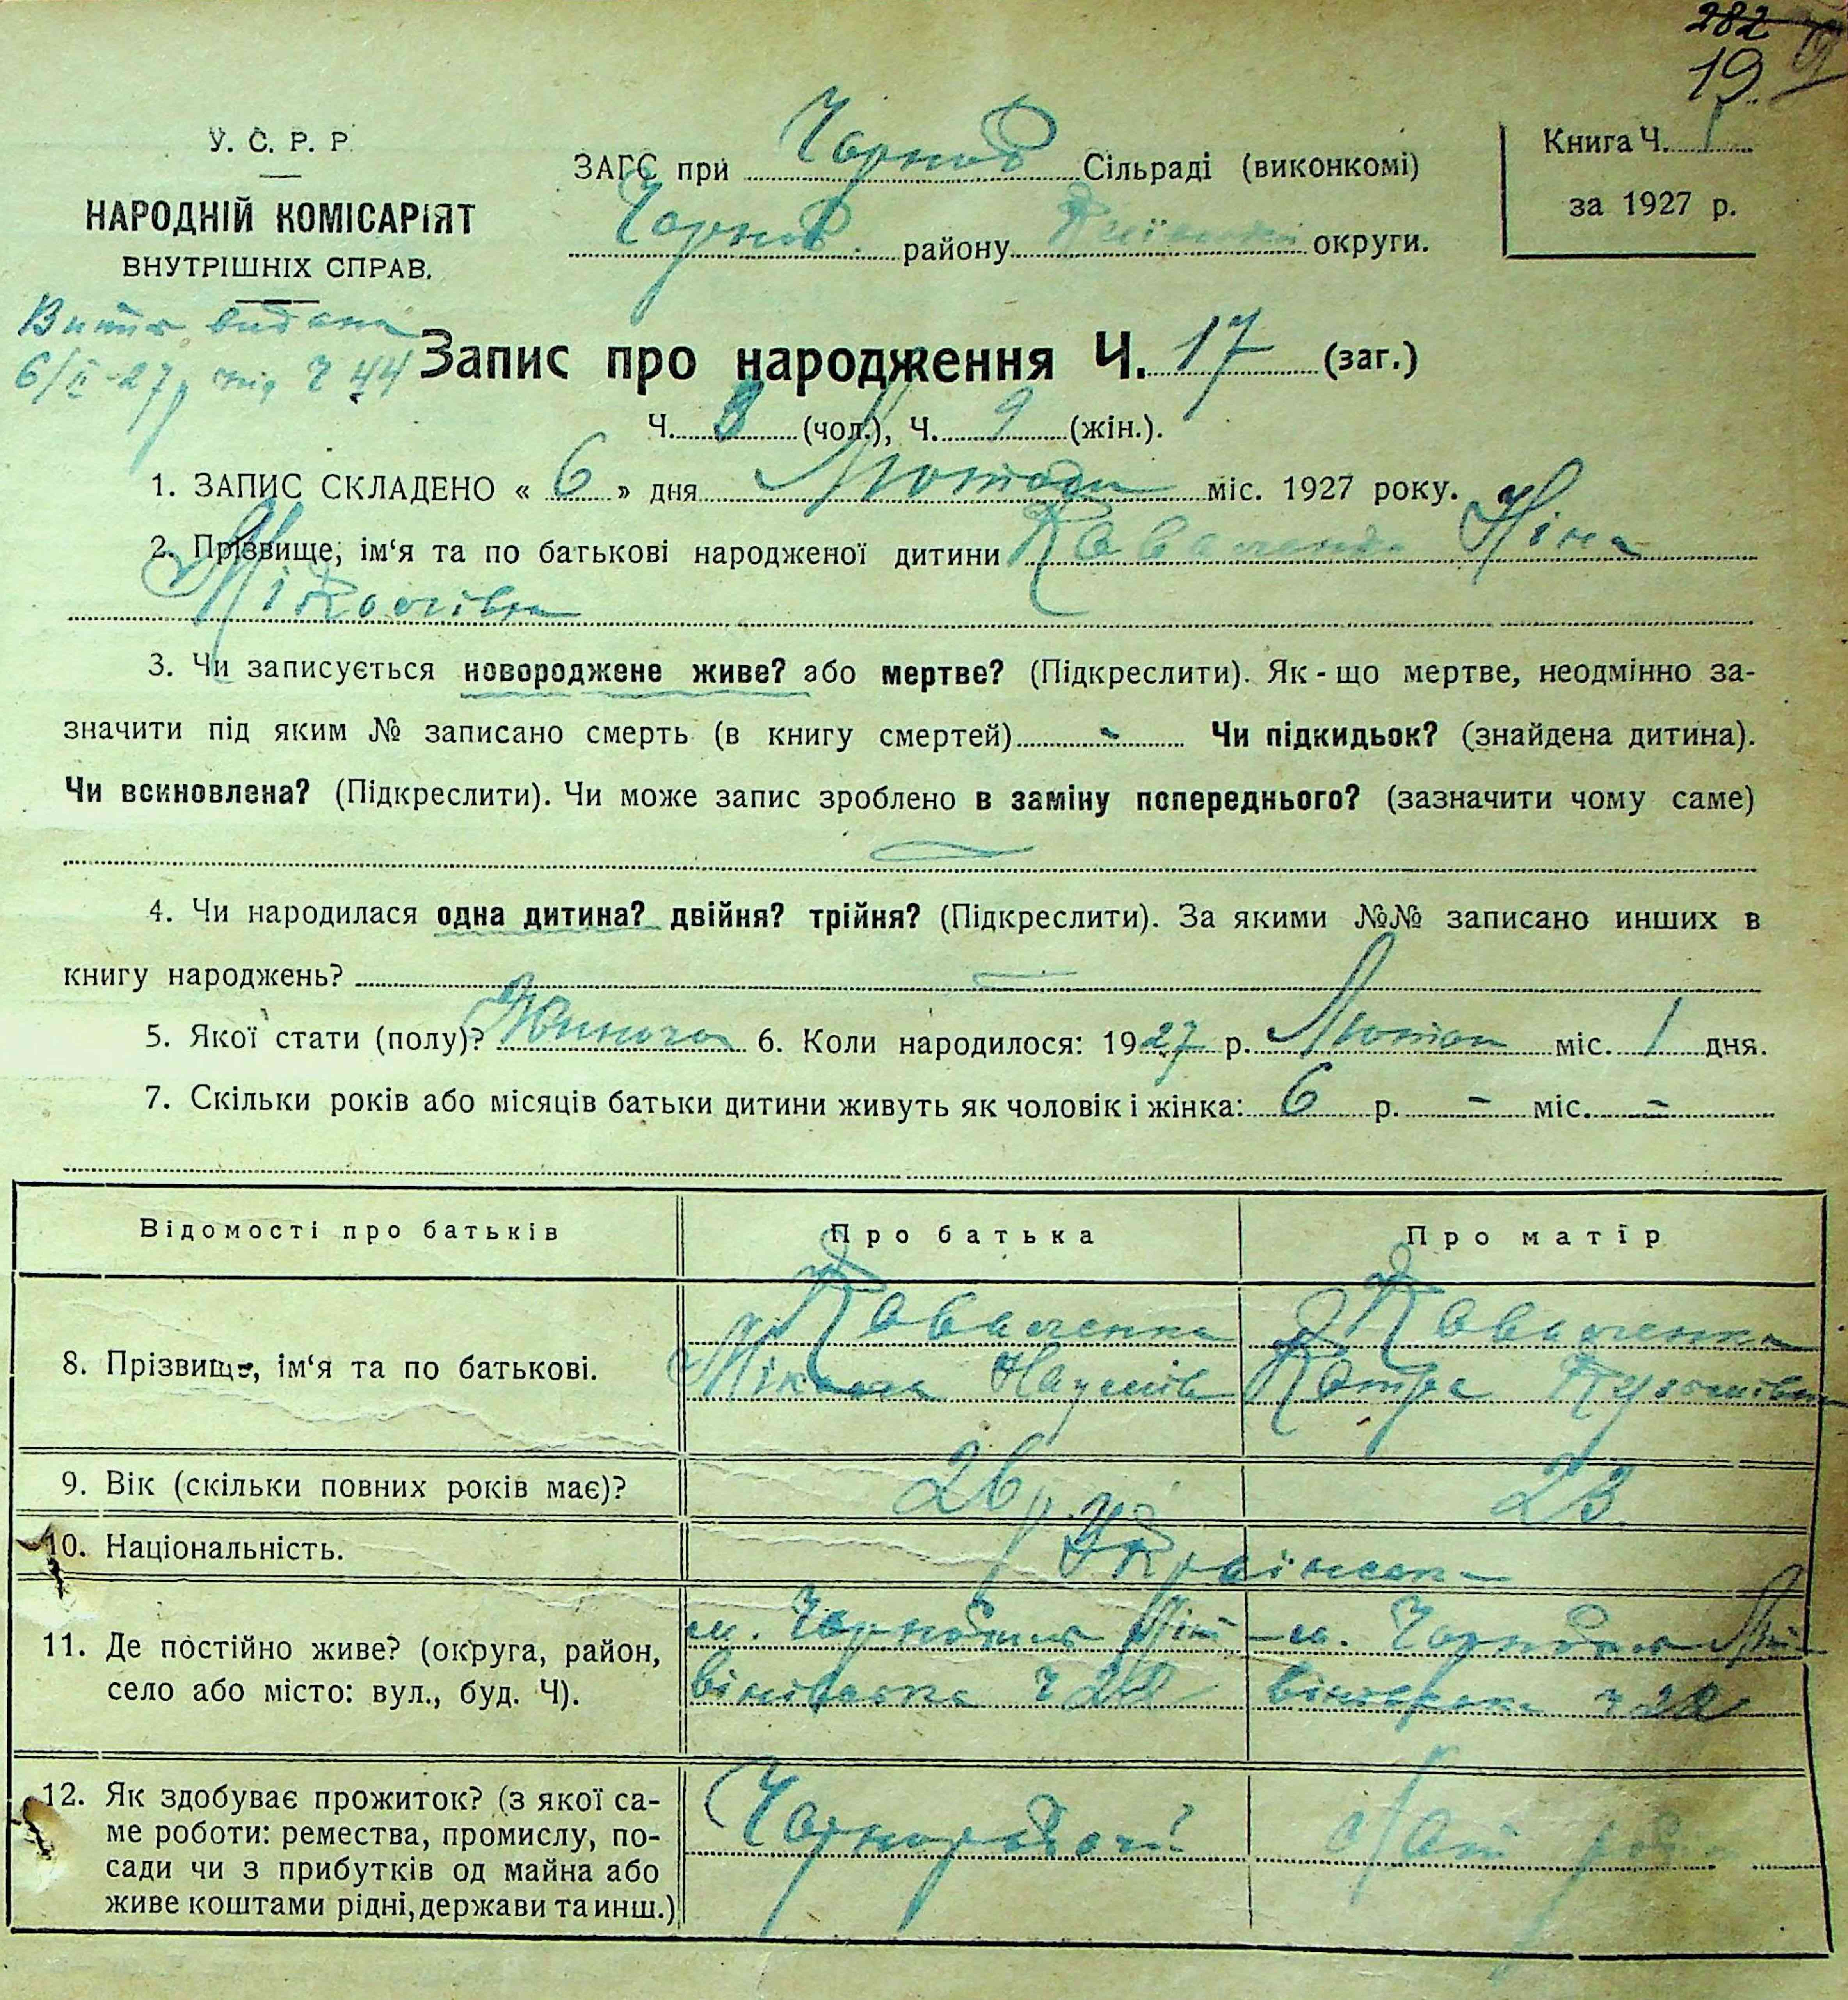 282
19
У. С. Р. Р.
НАРОДНІЙ КОМІСАРІЯТ
ВНУТРІШНІХ СПРАВ.
ЗАГС при Чорноб Сільраді (виконкомі)
Чорноб. району округи.
Книга Ч. 1
за 1927 р.
Витяг видана
6/II-27р під Ч 44
Запис про народження Ч. 17 (заг.)
Ч. 8 (чол.), Ч. 9 (жін.).
1. ЗАПИС СКЛАДЕНО « 6 » дня Лютого міс. 1927 року.
2. Прізвище, ім‘я та по батькові народженої дитини Коваленко Ніна
Міколаївна
3. Чи записується новороджене живе? або мертве? (Підкреслити). Як-що мертве, неодмінно за-
значити під яким № записано смерть (в книгу смертей) - Чи підкидьок? (знайдена дитина).
Чи всиновлена? (Підкреслити). Чи може запис зроблено в заміну попереднього? (зазначити чому саме)
4. Чи народилася одна дитина? двійня? трійня? (Підкреслити). За якими №№ записано инших в
книгу народжень?
5. Якої стати (полу)? Жиноча 6. Коли народилося: 1927 р. Лютого міс. 1 дня.
7. Скільки років або місяців батьки дитини живуть як чоловік і жінка: 6 р. - міс. -
Відомості про батьків Про батька Про матір
8. Прізвище, ім‘я та по батькові.
Коваленко Коваленко
Мікола Наумів
9. Вік (скільки повних років має)? 26 р. 23
10. Національність. Українська
11. Де постійно живе? (округа, район,
село або місто: вул., буд. Ч).
м. Чорнобиль м. Чорнобиль
12. Як здобуває прожиток? (з якої са-
ме роботи: ремества, промислу, по-
сади чи з прибутків од майна або
живе коштами рідні, держави та инш.)
Чорноробочій